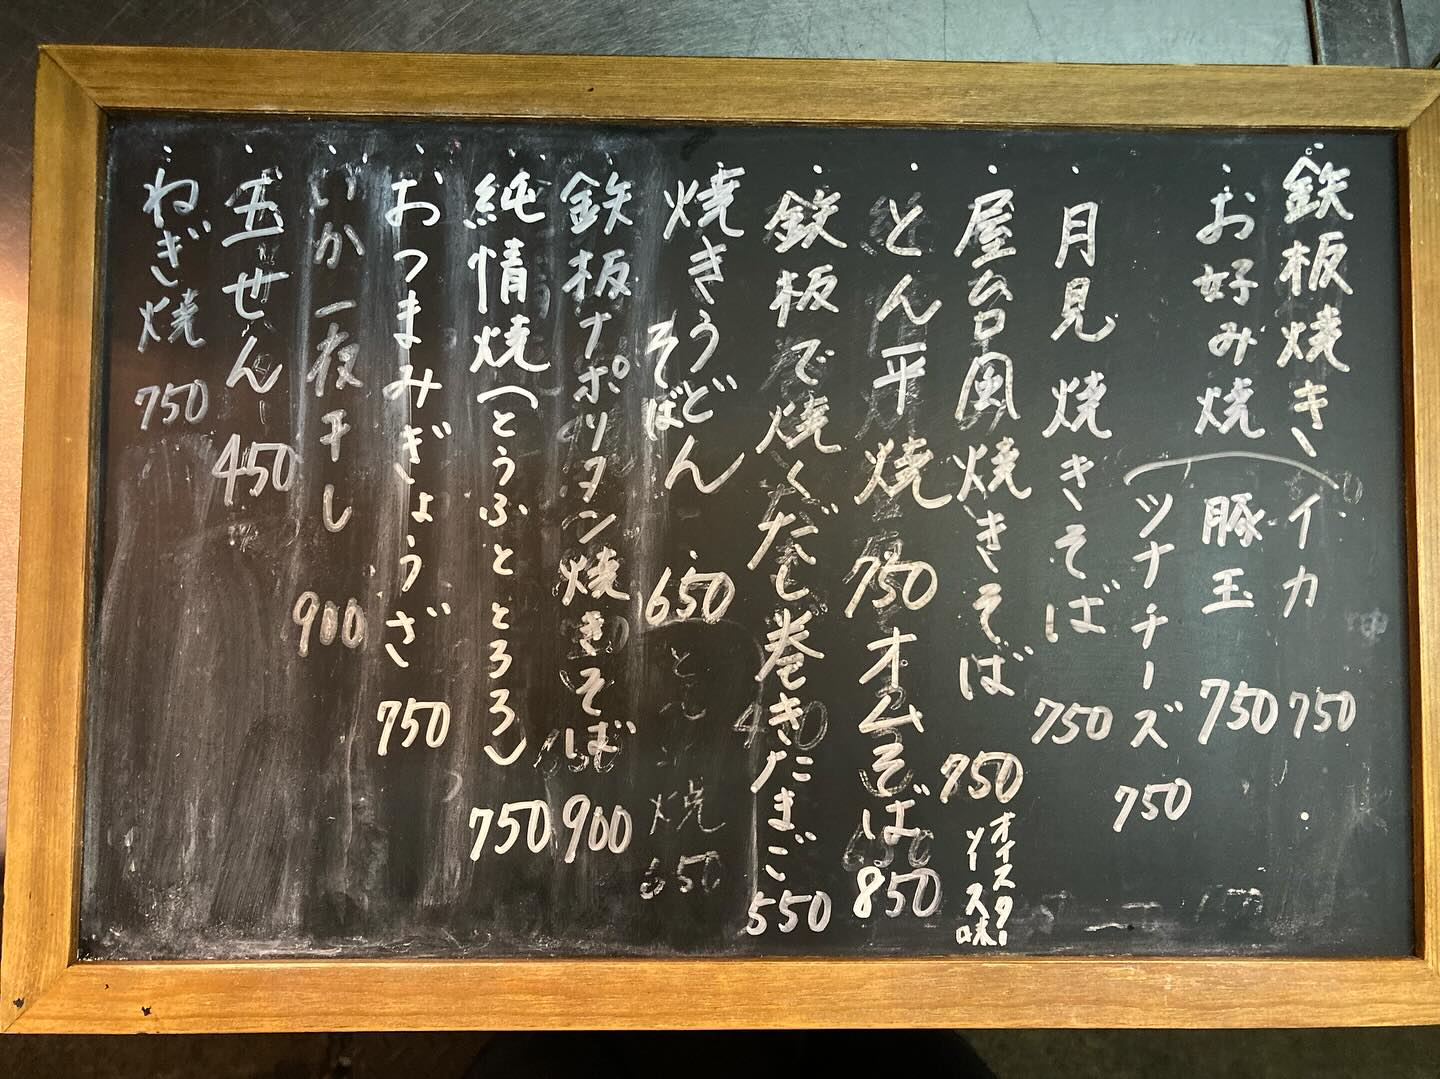 鉄板焼き
お好み焼
イカ 750
豚玉 750
ツナチーズ 750
月見焼きそば 750
屋台風焼きそば 750
オイスターソース味
とん平焼 750
オムそば 850
鉄板で焼くだし巻きたまご 550
焼きうどん 650
そば
鉄板ナポリタン焼きそば 900
純情焼(とうふととろろ) 750
おつまみぎょうざ 750
いか一夜干し 900
玉せん 450
ねぎ焼 750